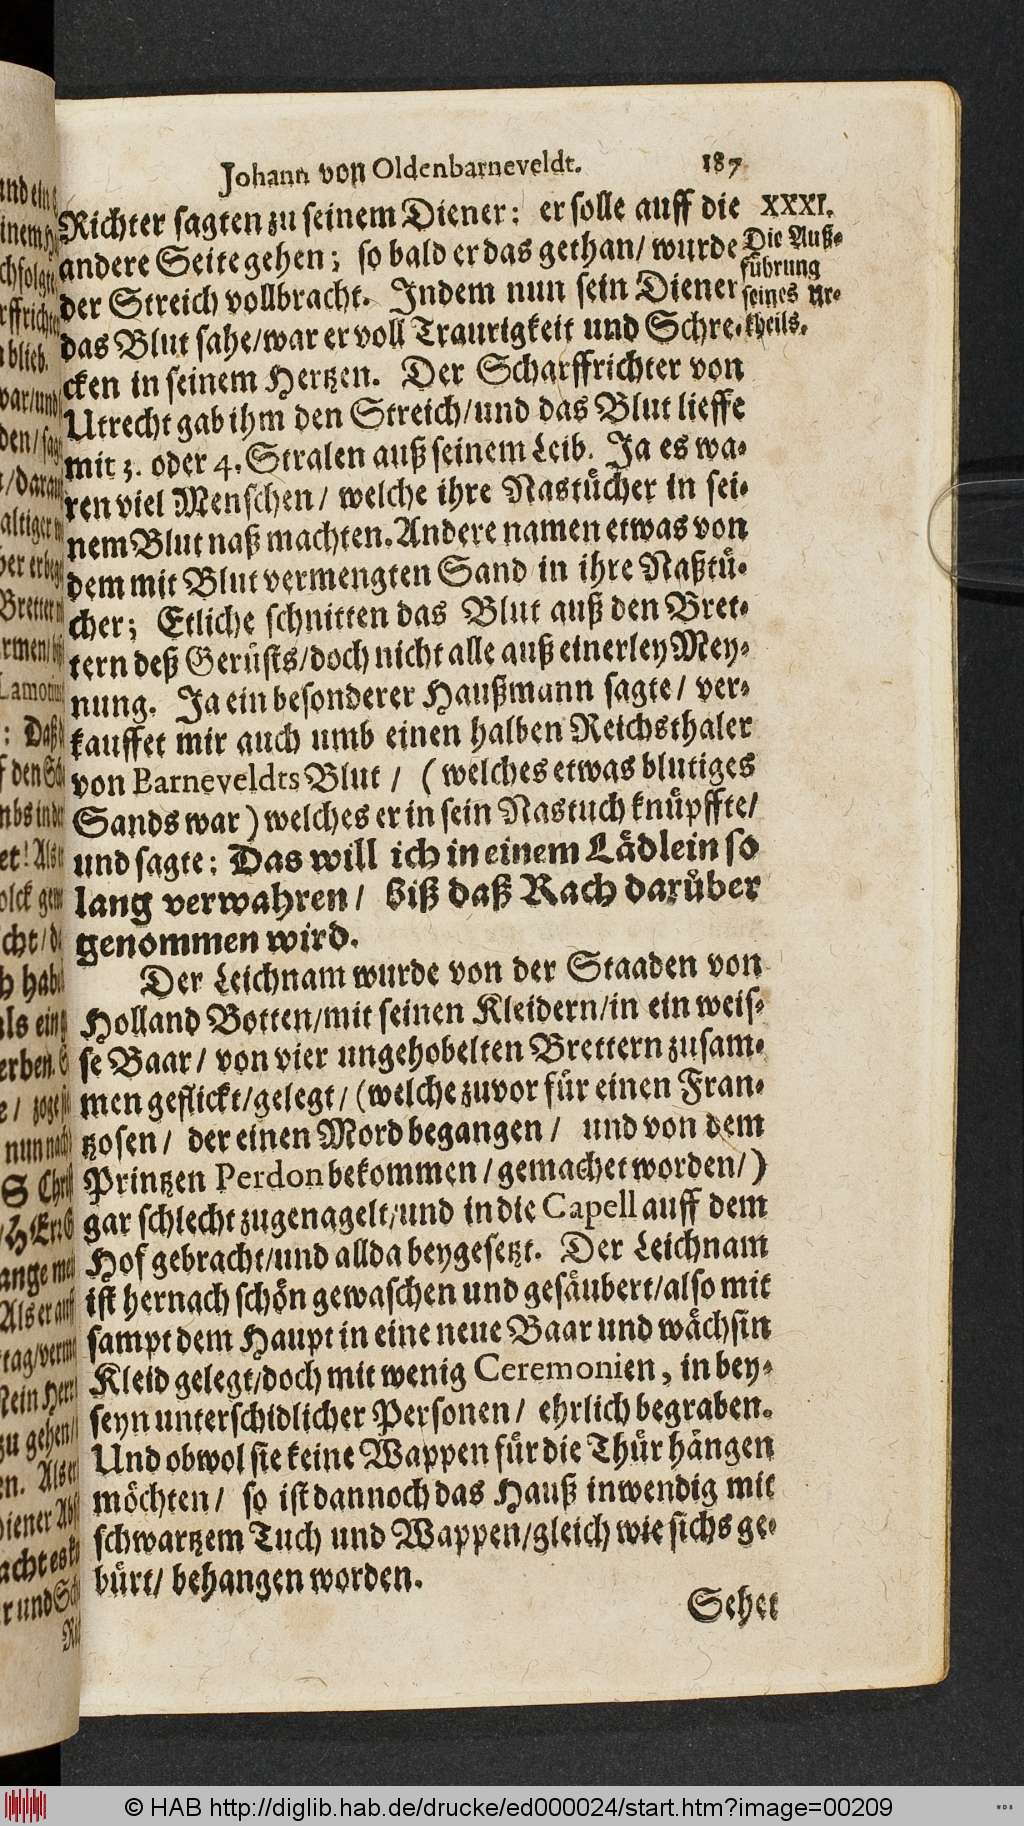 Johann von Oldenbarneveldt. 187
Richter sagten zu seinem Diener: er solle auff die
andere Seite gehen; so bald er das gethan/ wurde
der Streich vollbracht. Indem nun sein Diener
das Blut sahe/war er voll Traurigkeit und Schre-
cken in seinem Hertzen. Der Scharffrichter von
Utrecht gab ihm den Streich/und das Blut lieffe
mit 3. oder 4. Stralen auß seinem Leib. Ja es wa-
ren viel Menschen/ welche ihre Nastücher in sei-
nem Blut naß machten. Andere namen etwas von
dem mit Blut vermengten Sand in ihre Naßtü-
cher; Etliche schnitten das Blut auß den Bret-
tern deß Gerüsts/doch nicht alle auß einerley Mey-
nung. Ja ein besonderer Haußmann sagte/ ver-
kauffet mir auch umb einen halben Reichsthaler
von Barneveldts Blut/ (welches etwas blutiges
Sands war) welches er in sein Nastuch knüpffte/
und sagte: Das will ich in einem Lädlein so
lang verwahren/ biß daß Rach darüber
genommen wird.
XXXI.
Die Auß-
führung
seines Ur-
theils.
Der Leichnam wurde von der Staaden von
Holland Botten/mit seinen Kleidern/in ein weis-
se Baar/ von vier ungehobelten Brettern zusam-
men geflickt/gelegt/(welche zuvor für einen Fran-
tzosen/ der einen Mord begangen/ und von dem
Printzen Perdon bekommen/gemachet worden/)
gar schlecht zugenagelt/und in die Capell auff dem
Hof gebracht/und allda beygesetzt. Der Leichnam
ist hernach schön gewaschen und gesäubert/also mit
sampt dem Haupt in eine neue Baar und wächsin
Kleid gelegt/doch mit wenig Ceremonien, in bey-
seyn unterschidlicher Personen/ ehrlich begraben.
Und obwol sie keine Wappen für die Thür hängen
möchten/ so ist dannoch das Hauß inwendig mit
schwartzem Tuch und Wappen/gleich wie sichs ge-
bürt/ behangen worden.
Sehet
© HAB http://diglib.hab.de/drucke/ed000024/start.htm?image=00209